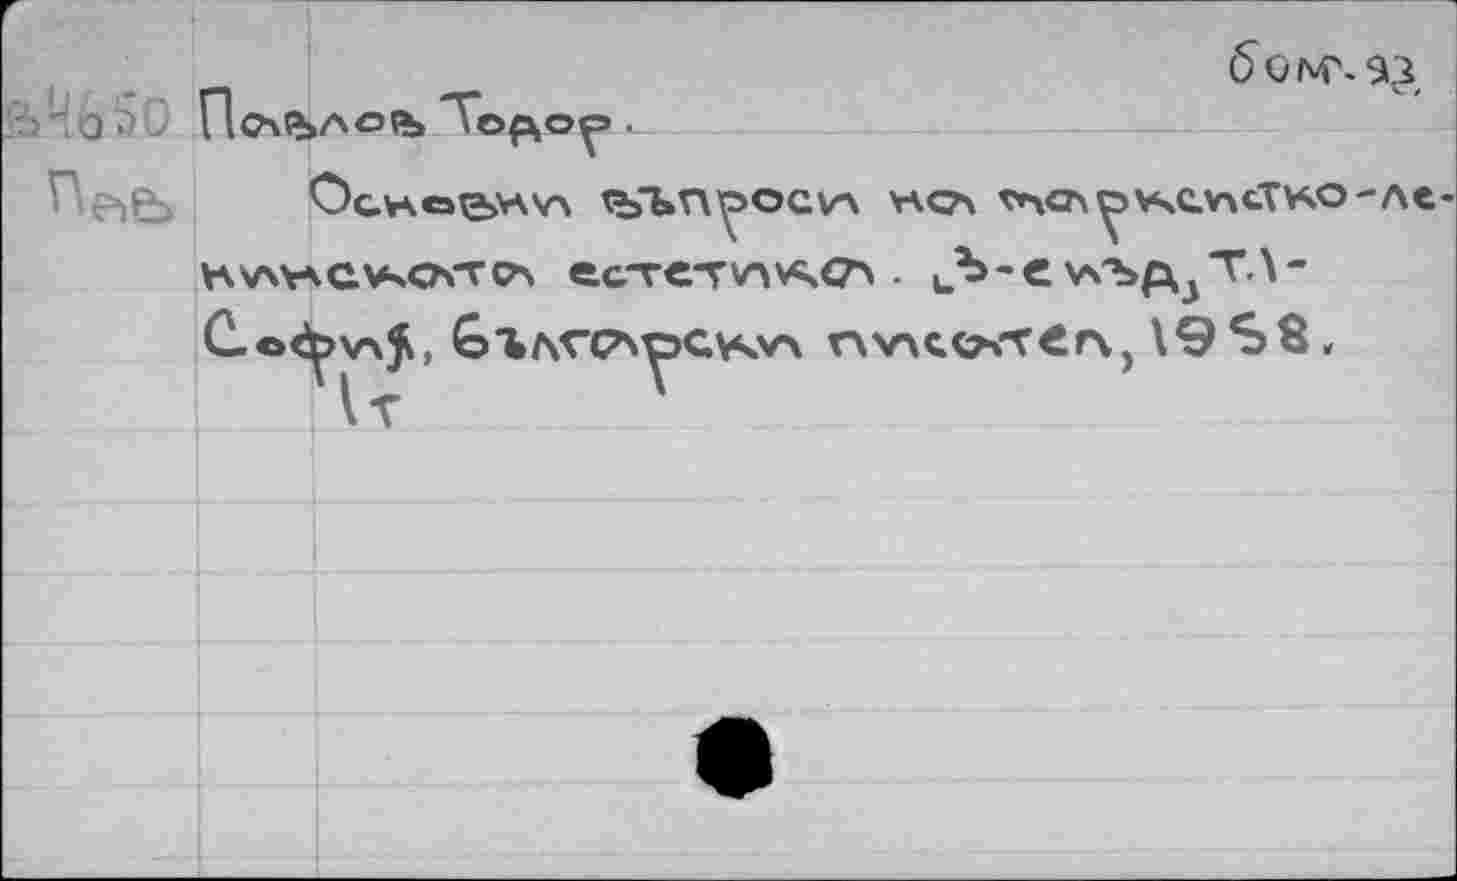 болг. яз.
Павлов Тодор.
Пав
Основни въпроси на марксистко-ле-
нинската естетика. Ъ-е изд, т.1-
София, Български писател, 1958.
1т